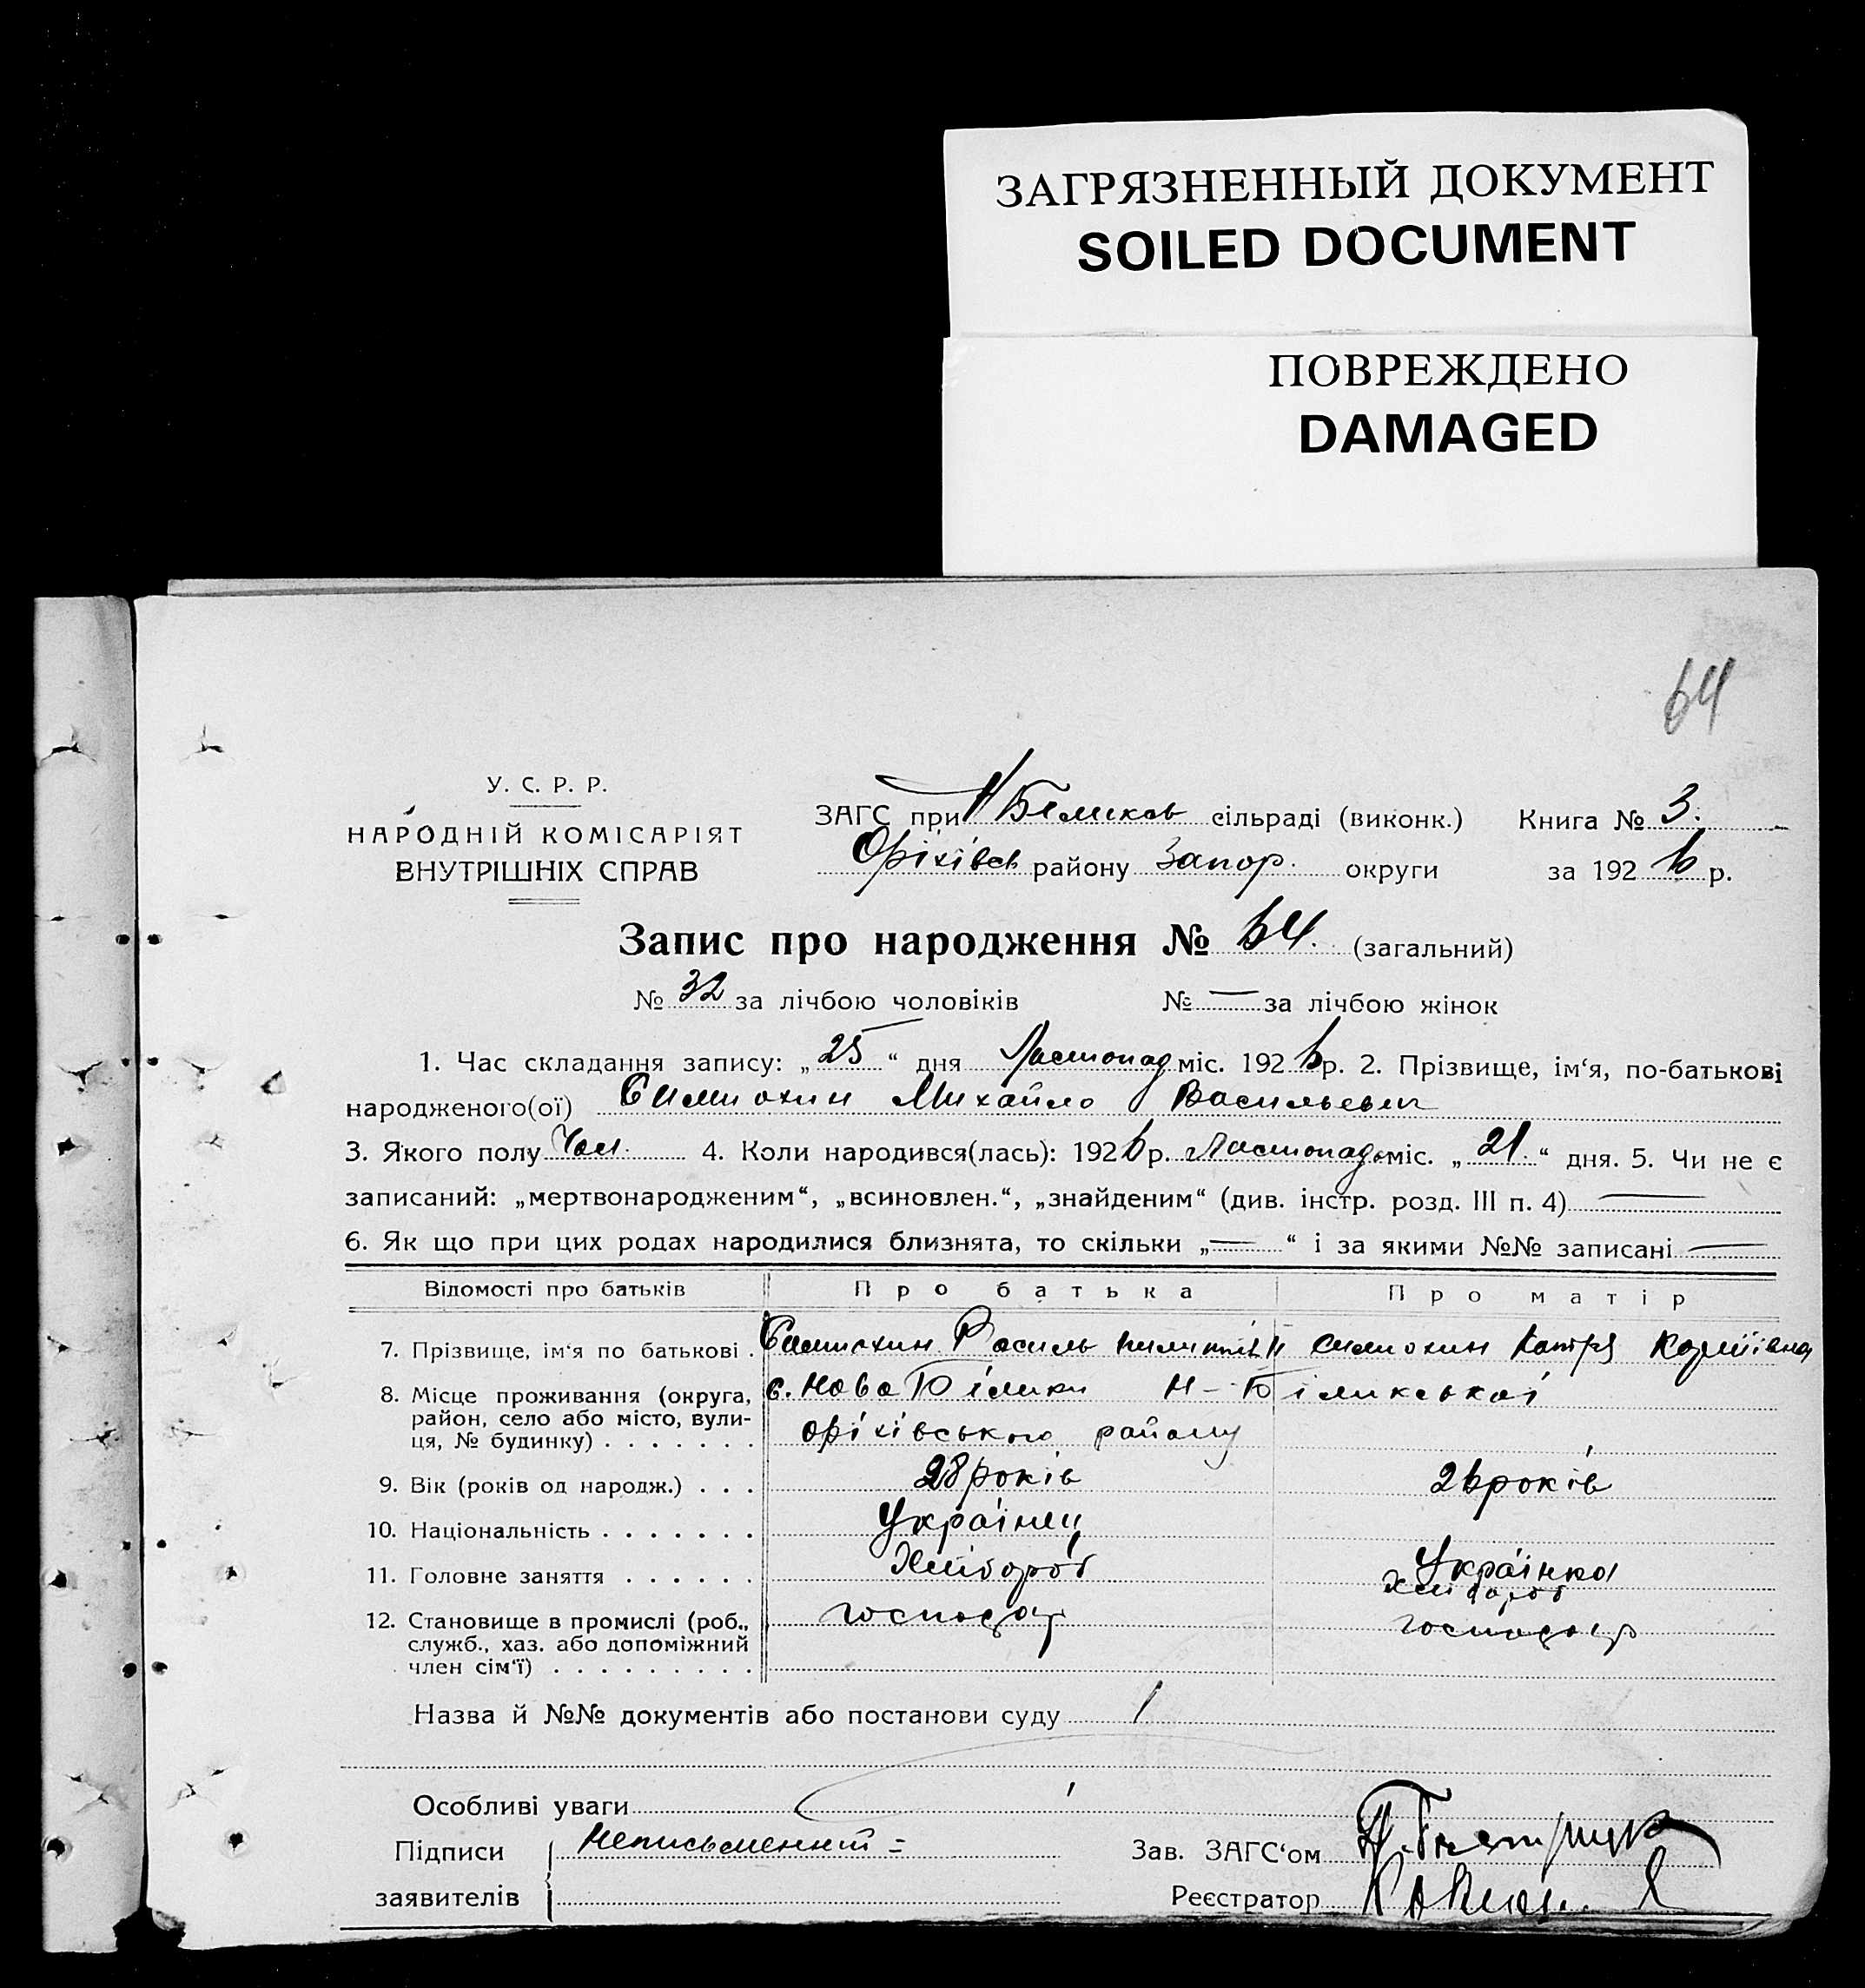 ЗАГРЯЗНЕННЫЙ ДОКУМЕНТ
SOILED DOCUMENT
ПОВРЕЖДЕНО
DAMAGED
64
У. С. Р. Р.
НАРОДНІЙ КОМІСАРІЯТ
ВНУТРІШНІХ СПРАВ
ЗАГС при Н Беликов сільраді (виконк.) Книга № 3.
Оріхівсь району Запор. округи за 1926 р.
Запис про народження № 64. (загальний)
№ 32 за лічбою чоловіків № — за лічбою жінок
1. Час складання запису: „25“ дня Листопад міс. 1926 р. 2. Прізвище, ім‘я, по-батькові
народженого(ої) Михайло Васильевич
3. Якого полу Чол. 4. Коли народився(лась): 1926 р. Листопад міс. „21.“ дня. 5. Чи не є
записаний: „мертвонародженим“, „всиновлен.“, „знайденим“ (див. інстр. розд. III п. 4) —
6. Як що при цих родах народилися близнята, то скільки „—“ і за якими №№ записані —
Відомості про батьків Про батька Про матір
7. Прізвище, ім‘я по батькові . Василь Катря
8. Місце проживання (округа, с. Ново Білики Н-Біликської
район, село або місто, вули- Оріхівського району
ця, № будинку) . . . . . . .
9. Вік (років од народж.) . . . 28 років 26 років
10. Національність . . . . . . . Українец Українка
11. Головне заняття . . . . . . Хлібороб Хлібороб
12. Становище в промислі (роб., господар господар
служб., хаз. або допоміжний
член сім‘ї) . . . . . . . . .
Назва й №№ документів або постанови суду
Особливі уваги
Підписи Неписьменний = Зав. ЗАГС‘ом
заявителів Реєстратор